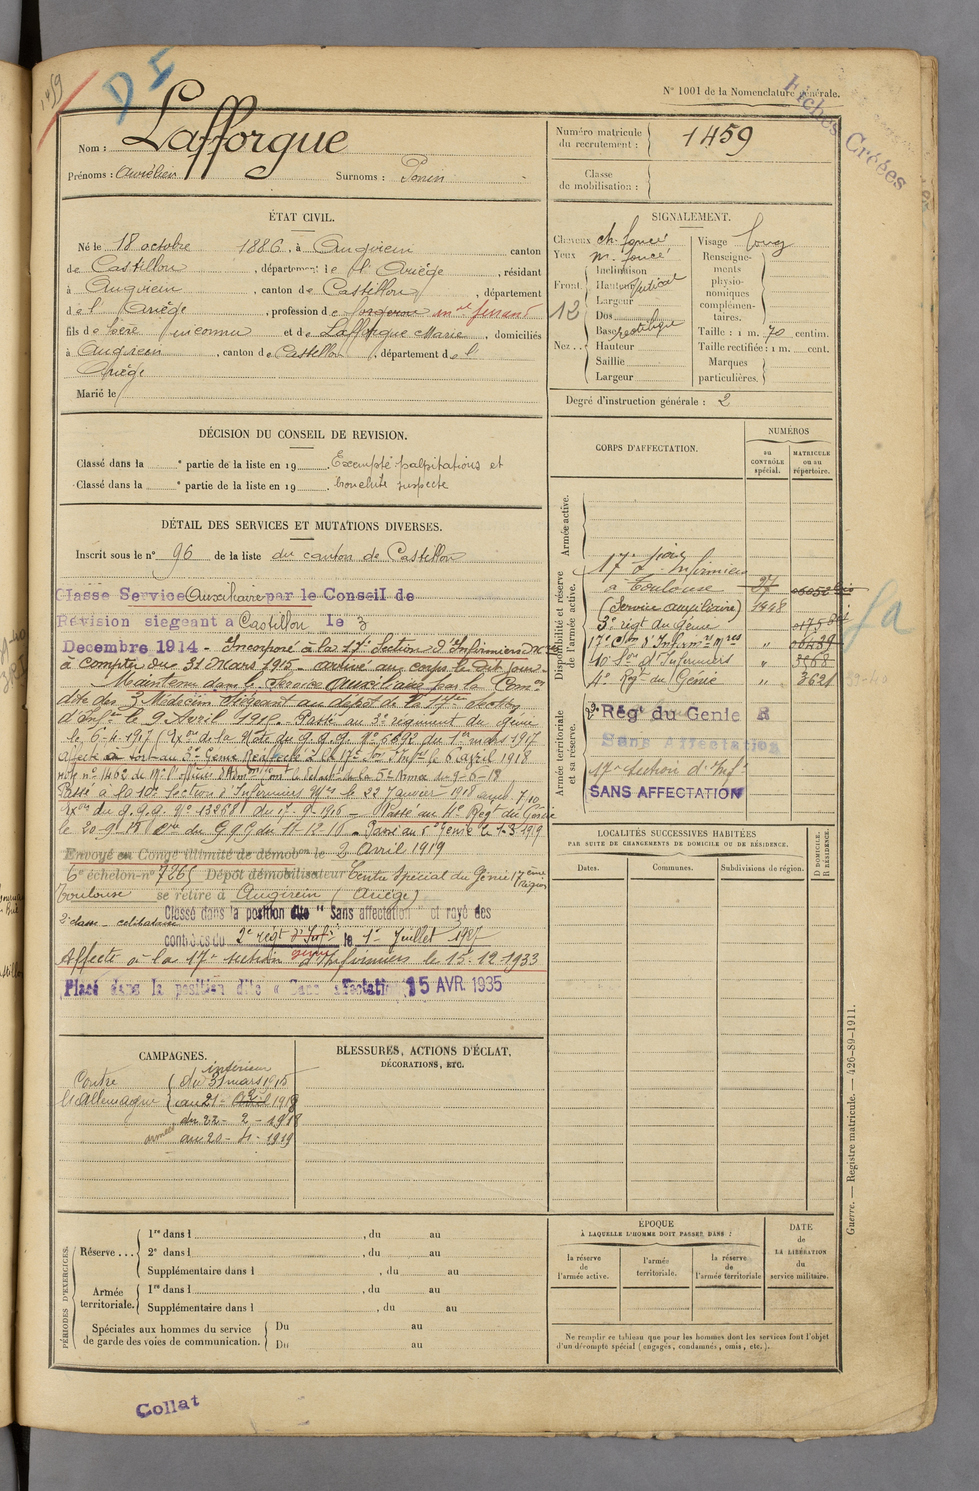 1459
D 5
N° 1001 de la Nomenclature générale.
Fiches Créées
Nom : Lafforgue
Prénoms : Aurélien Surnoms : Ponin
Numéro matricule du recrutement : 1459
Classe de mobilisation :
ÉTAT CIVIL.
Né le 18 octobre 1886, à Augirein canton
de Castillon, département de l'Ariège, résidant
à Augirein, canton de Castillon, département
de l'Ariège, profession de forgeron mal ferrant
fils de père inconnu et de Lafforgue Marie, domiciliés
à Augirein, canton de Castillon, département de l'
Ariège
Marié le
SIGNALEMENT.
Cheveux ch. foncé
Yeux m. foncé
Front Inclinaison
Hauteur vertical
Largeur
12
Nez Dos
Base rectiligne
Hauteur
Saillie
Largeur
Visage long
Renseignements physionomiques complémentaires.
Taille : 1 m. 70 centim.
Taille rectifiée : 1 m. cent.
Marques particulières.
Degré d'instruction générale : 2
DÉCISION DU CONSEIL DE REVISION.
Classé dans la e partie de la liste en 19 . Exempté palpitations et
Classé dans la e partie de la liste en 19 . bronchite suspecte
DÉTAIL DES SERVICES ET MUTATIONS DIVERSES.
Inscrit sous le n° 96 de la liste du canton de Castillon
Classe Service Auxiliaire par le Conseil de
Révision siegeant a Castillon le 3
Decembre 1914 - Incorporé à la 17e Section d'Infirmiers
à compter du 31 Mars 1915 - arrivé au corps le dit jour
Maintenu dans le Service Auxiliaire par la Comon
dite des 3 Médecins siégeant au dépôt de la 17e section
d'Infirm le 9 Avril 1915. Passé au 3e régiment du génie
le 6-4-1917 (Exon de la Note du G.Q.G. N° 6692 du 1er mars 1917
le 6 avril 1918
Passé à la 10e Section d'Infirmiers Mres le 22 Janvier 1918
Exon du G.Q.G. N° 13268 Passé au 4e Regt du Génie
le 20-9-18 du G.Q.G du 11-12-18 - Passé au 2e Génie le 1-3-1919
Envoyé en Congé illimité de démobon le 2 Avril 1919
6e échelon n° 7265 Dépôt démobilisateur Centre Spécial du Génie 17eme Région
Toulouse se retire à Augirein (Ariège)
2e classe - celibataire Classé dans la position dite "Sans affectation" et rayé des
contrôles du 2e régt d'Infie génie le 1er Juillet 1927
Affecté à la 17e section d'Infirmiers le 15-12-1933
Placé dans la position dite « Sans affectation » 15 AVR. 1935
CORPS D'AFFECTATION.
NUMÉROS
au CONTRÔLE spécial.
MATRICULE ou au répertoire.
Armée active.
Disponibilité et réserve de l'armée active.
17e Son Infirmiers
à Toulouse
(Service auxiliaire)
3e régt du Génie
17e Son d'Infirmrs Mres 06489
10e Son d'Infirmiers " 3568
4e Regt du Génie " 3621
39-40
Armée territoriale et sa réserve.
2e Régt du Genie R
Sans Affectation
17e Section d'Infs
SANS AFFECTATION
LOCALITÉS SUCCESSIVES HABITÉES
PAR SUITE DE CHANGEMENTS DE DOMICILE OU DE RÉSIDENCE.
Dates.
Communes.
Subdivisions de région.
D DOMICILE. R RÉSIDENCE.
CAMPAGNES.
Contre l'Allemagne
intérieur
du 31 mars 1915
au 21-2-1918
armées
du 22-2-1918
au 20-4-1919
BLESSURES, ACTIONS D'ÉCLAT,
DÉCORATIONS, ETC.
PÉRIODES D'EXERCICES.
Réserve ... 1re dans l , du au
2e dans l , du au
Supplémentaire dans l , du au
Armée territoriale. 1re dans l , du au
Supplémentaire dans l , du au
Spéciales aux hommes du service de garde des voies de communication. Du au
Du au
ÉPOQUE
À LAQUELLE L'HOMME DOIT PASSER DANS :
la réserve de l'armée active.
l'armée territoriale.
la réserve de l'armée territoriale
DATE de LA LIBÉRATION du service militaire.
Ne remplir ce tableau que pour les hommes dont les services font l'objet
d'un décompte spécial (engagés, condamnés, omis, etc.).
Guerre. — Registre matricule. — 426-89-1911.
Collat